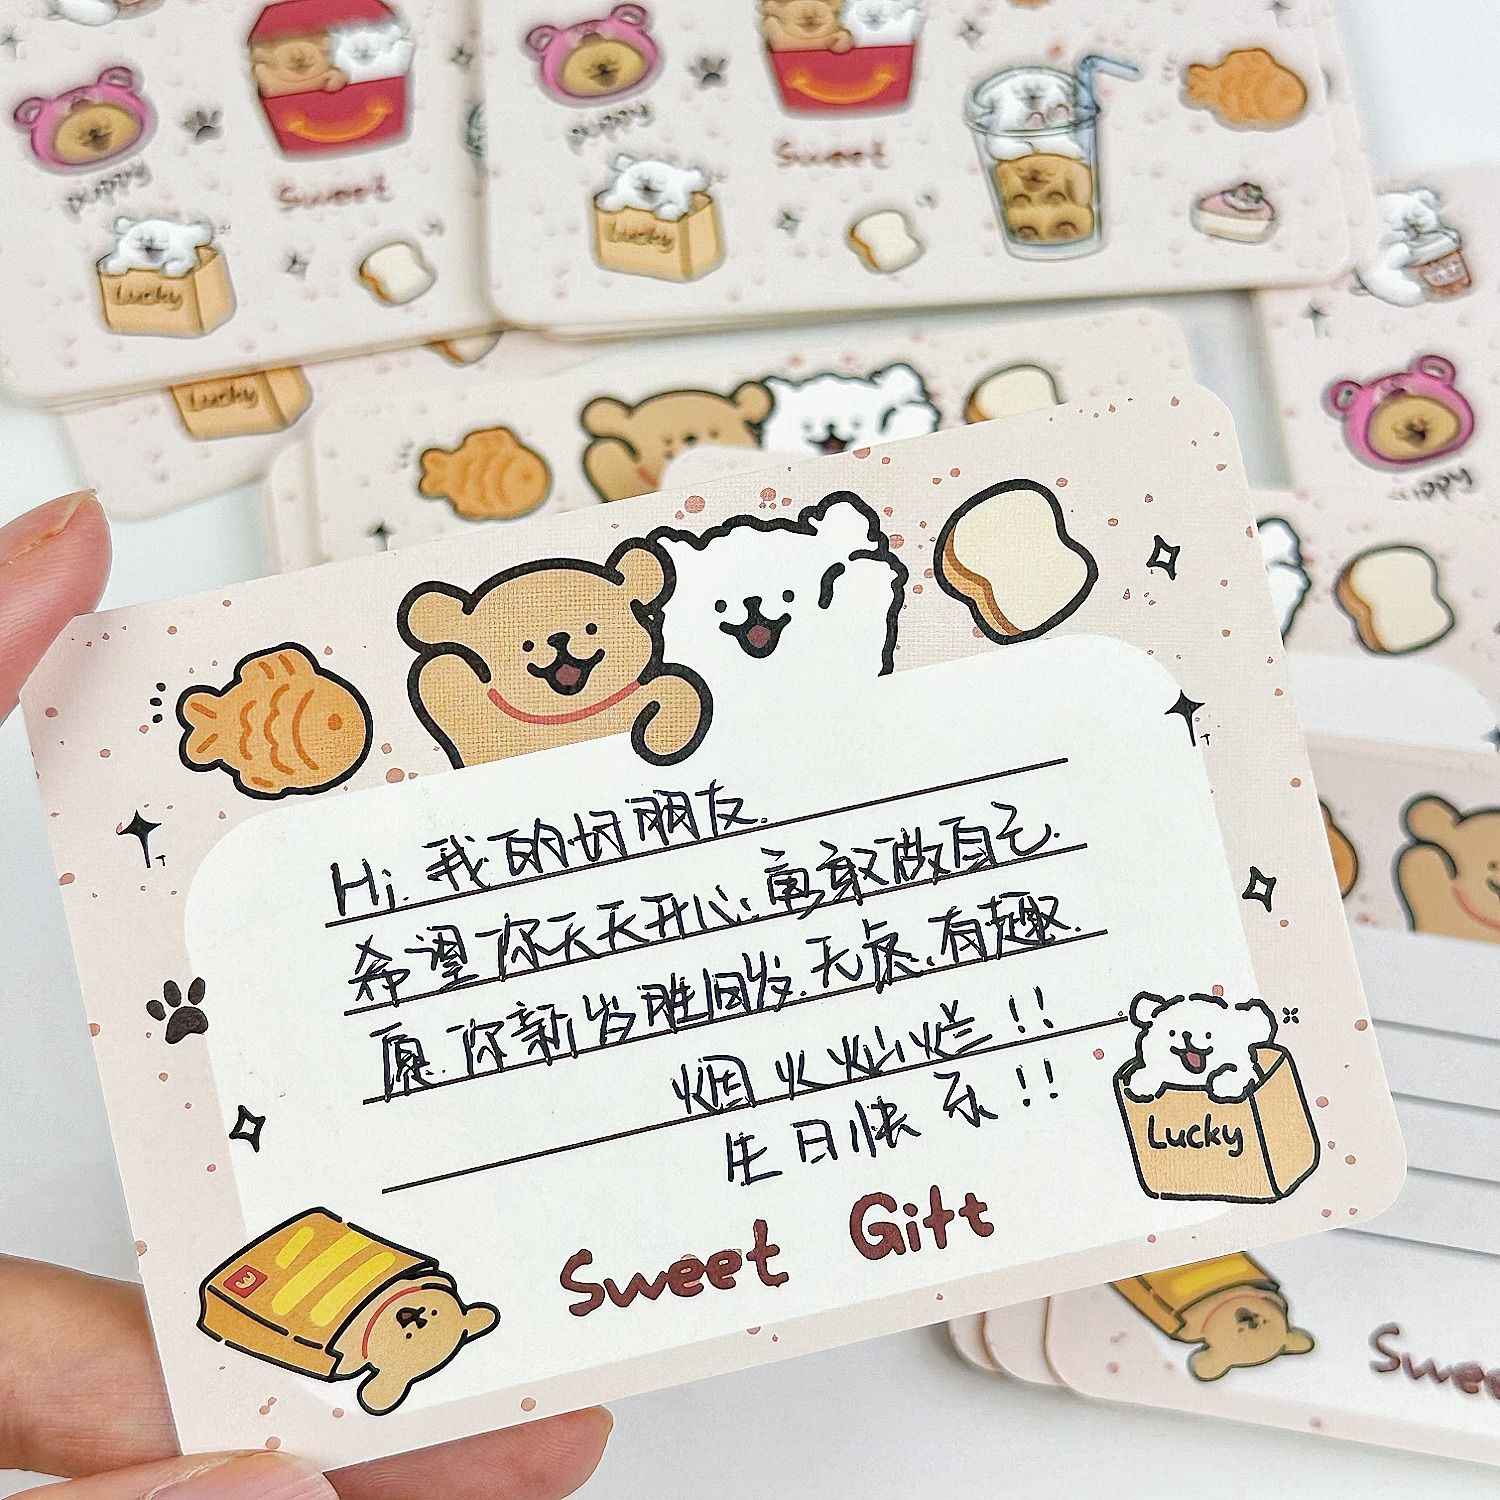 puppy
Sweet
Lucky
puppy
Sweet
Lucky
Lucky
puppy
Hi. 我的好朋友.
希望你天天开心.勇敢做自己.
愿你新岁胜旧岁.无虑.有趣.
烟火灿烂!!
生日快乐!!
Lucky
Sweet Gift